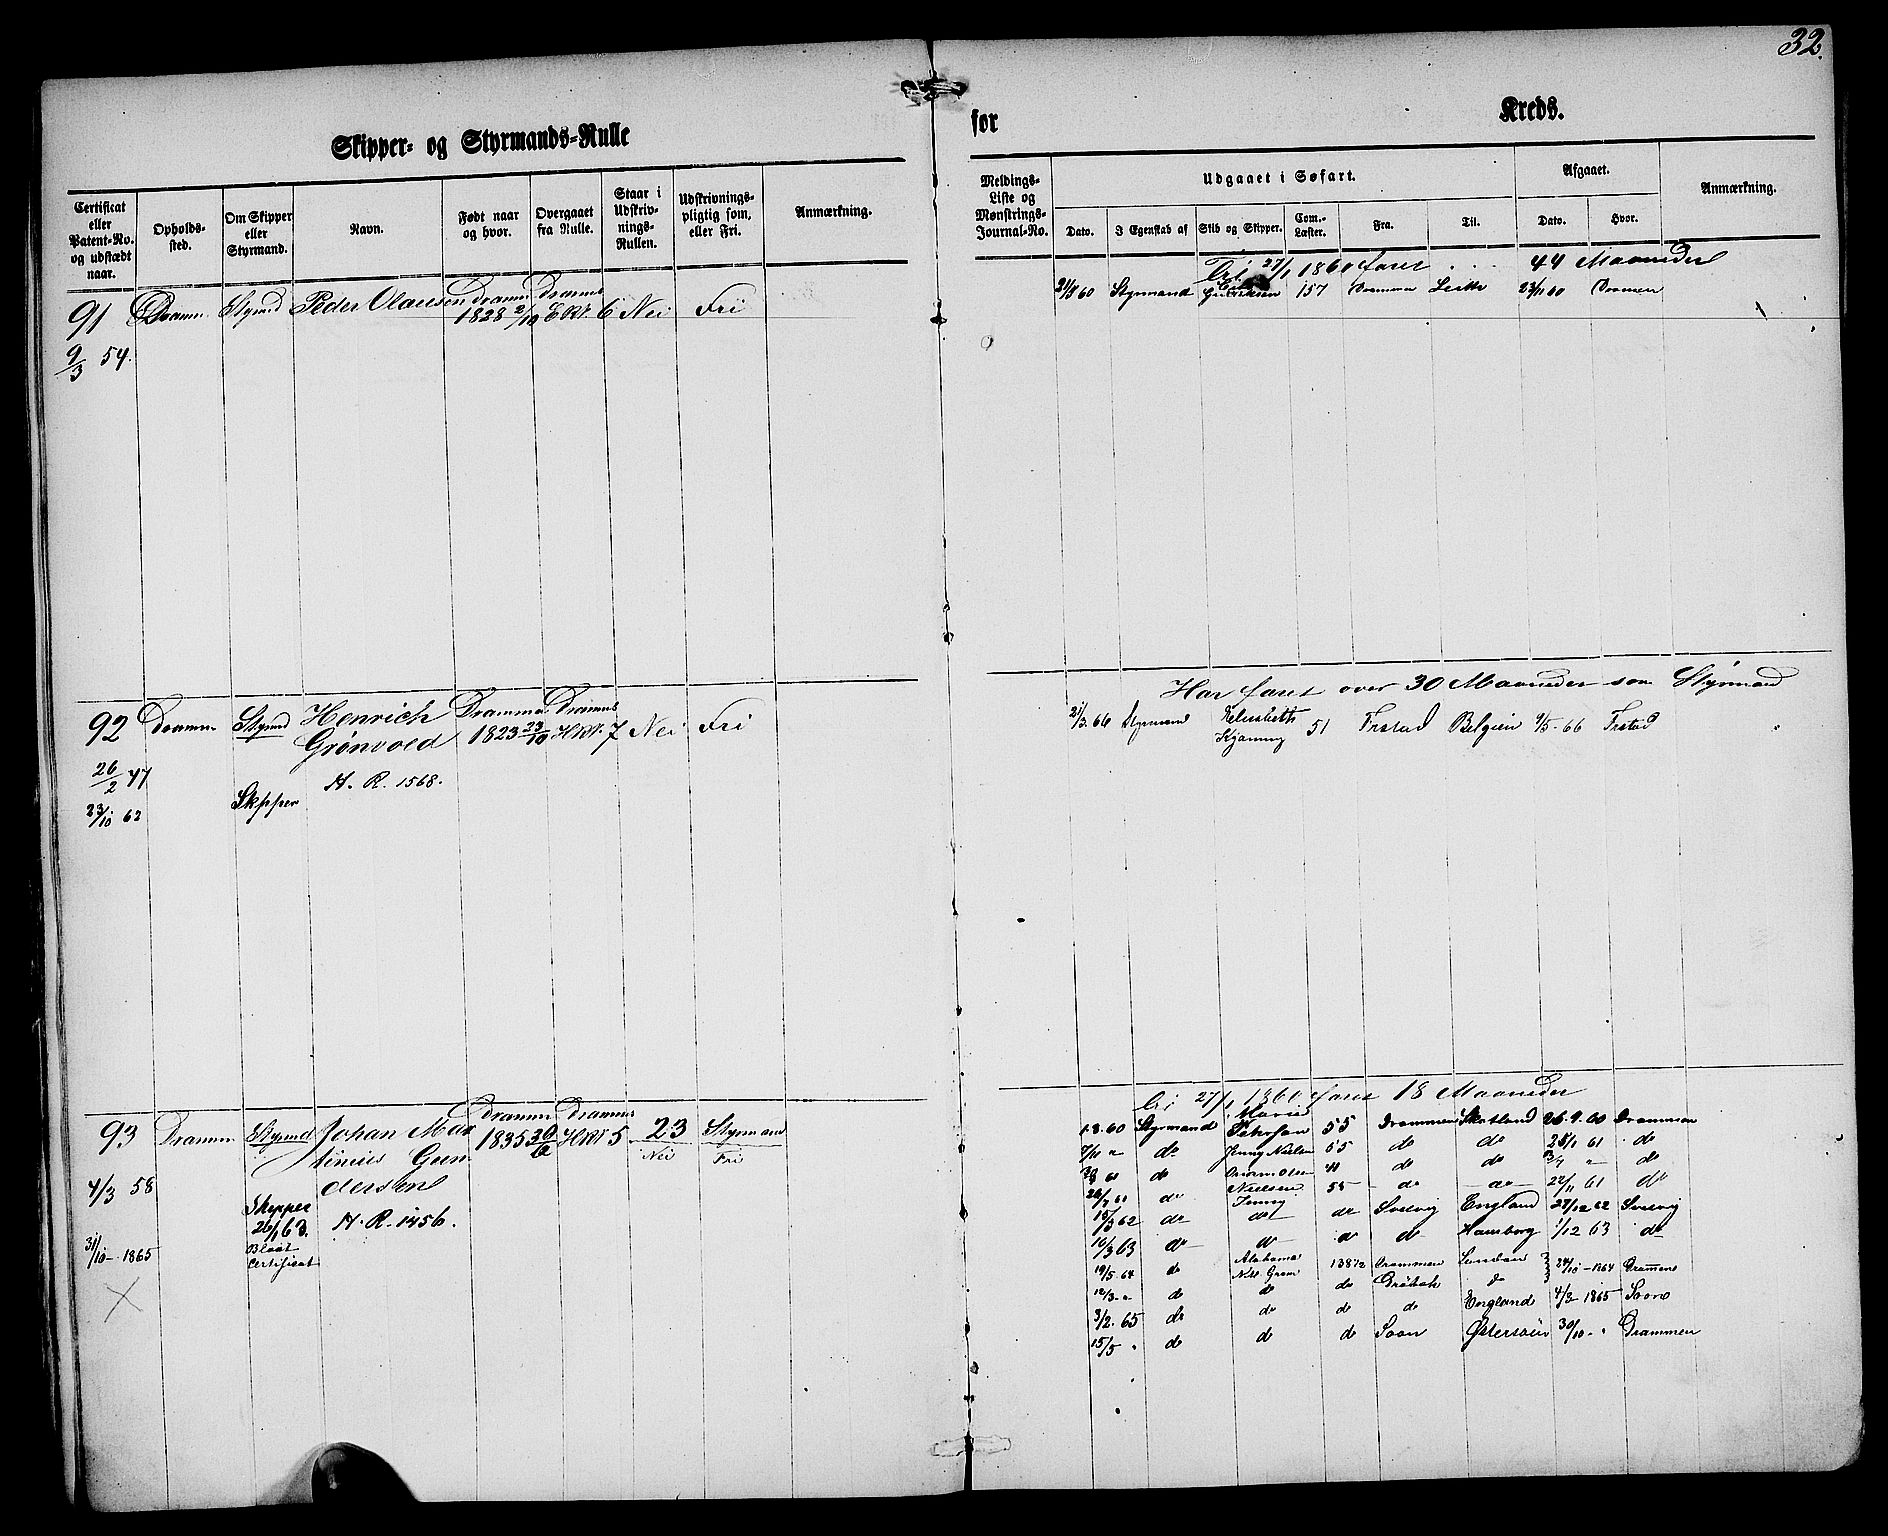 32.
Skipper- og Styrmands-Rulle
for
Kreds.
Certificat eller Patent-No. og udstædt naar.
Opholds-sted.
Om Skipper eller Styrmand.
Navn.
Født naar og hvor.
Overgaaet fra Rulle.
Staar i Udskriv-nings-Rullen.
Udskrivnings-pligtig som, eller Fri.
Anmærkning.
Meldings-Liste og Mønstrings-Journal-No.
Udgaaet i Søfart.
Afgaaet.
Anmærkning.
Dato.
I Egenskab af
Skib og Skipper.
Com.-Læster.
Fra.
Til.
Dato.
Hvor.
91 Dramn. Stymd Peder Olausen Dramn Dramns
1828 2/10 6 Nei Fri
9/3 54.
27/1 1860 faret . . . 44 Maaneder
21/3 60 Styrmand 157 Drammen 23/11 60 Dramen
92 Dramn. Stymd Henrich Dramme Dramns
Grønvold 1823 23/10 HRt. 7 Nei Fri
26/2 47
H. R. 1568.
23/10 62 Skpper
Har faret over 30 Maaneder som Styrmand
21/3 66 Styrmand Elisabeth 51 Frstad Belgien 9/5 - 66 Frstad
93 Dramm Stymd Johan Mar Dramn Dramns
tinius Gun 1835 HRt 5 23 Styrmand
Nei Fri
4/3 58 dersen
Skipper 26/1 63. H. R. 1456.
31/10 - 1865 Blaat Certifikat
27/1 1860 faret 18 Maaneder
1.3.60 Styrmand Marie Petersen 55 Drammen Skotland 26.9.60 Drammen
7/11 " do Jenny Nielsen 55 do do 28/1 61 do
61 do Olsen do do " do
26/7 61 do Nielsen Jenny 55 - do - do - 22/11 61 do
15/3 62 do do do Svelvig England 27/12 62 Svelvig
16/3 63 do do do do Hamborg 1/12 63 do
19/5. 64 do Alabama 138½ Drammen London 24/10 - 1864 Drammen
12/3 - " do do do Drøbak do
3/2. 65 do do do do England 4/3 - 1865 Soon
15/5 " do do do Soon Østersøen 30/10 - " Drammen